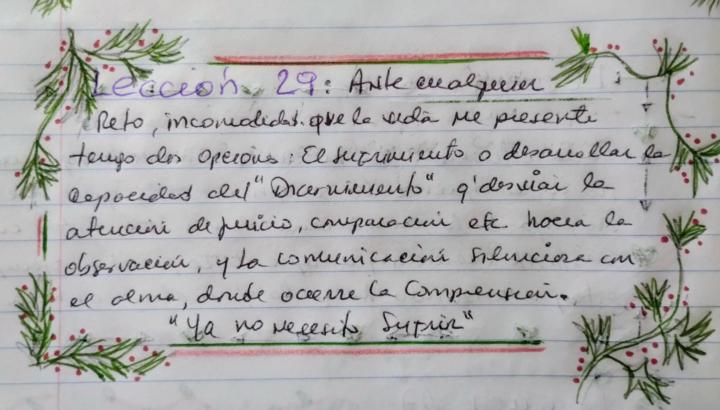 Lección 29: Ante cualquier
Reto, incomodidad que la vida me presente
tengo dos opciones: El sufrimiento o desarrollar la
capacidad del "Discernimiento" q' desviar la
atención de juicio, comparación etc. hacia la
observación, y la comunicación silenciosa con
el alma, donde ocurre la Comprensión.
"Ya no necesito Sufrir"